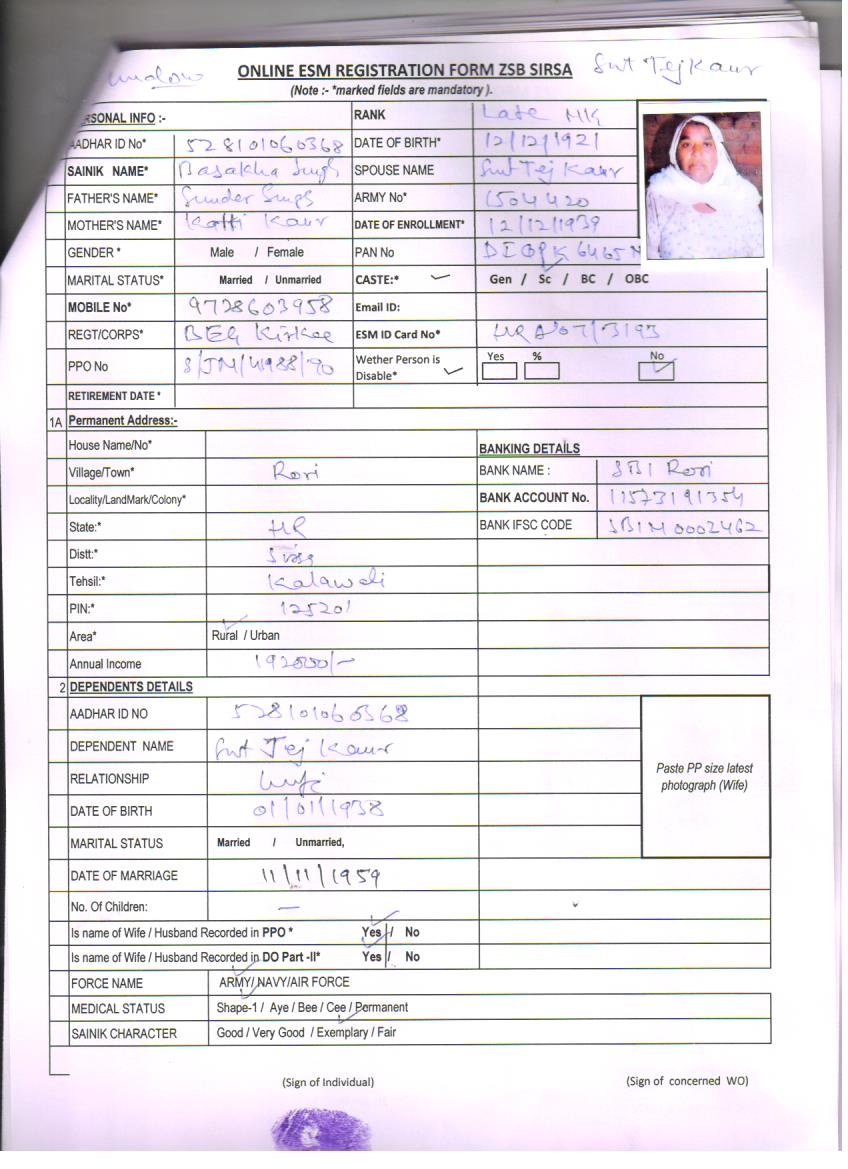 Widow ONLINE ESM REGISTRATION FORM ZSB SIRSA Smt Tej Kaur
(Note :- *marked fields are mandatory ).
ERSONAL INFO :- RANK Late NK
AADHAR ID No* 528101060368 DATE OF BIRTH* 12/12/1921
SAINIK NAME* Basakha Singh SPOUSE NAME Smt Tej Kaur
FATHER'S NAME* Sunder Singh ARMY No* 1504420
MOTHER'S NAME* Katti Kaur DATE OF ENROLLMENT* 12/12/1939
GENDER * Male / Female PAN No DIOPK6465N
MARITAL STATUS* Married / Unmarried CASTE:* Gen / Sc / BC / OBC
MOBILE No* 9728603958 Email ID:
REGT/CORPS* BEG Kirkee ESM ID Card No* HRA/07/3193
PPO No S/JM/41988/90 Wether Person is Disable* Yes % No
RETIREMENT DATE *
1A Permanent Address:-
House Name/No* BANKING DETAILS
Village/Town* Rori BANK NAME : SBI Rori
Locality/LandMark/Colony* BANK ACCOUNT No. 11573191354
State:* HR BANK IFSC CODE SBIN0002462
Distt:* Sirsa
Tehsil:* Kalawali
PIN:* 125201
Area* Rural / Urban
Annual Income 192000/-
2 DEPENDENTS DETAILS
AADHAR ID NO 528101060368
DEPENDENT NAME Smt Tej Kaur
RELATIONSHIP Wife
DATE OF BIRTH 01/01/1938
MARITAL STATUS Married / Unmarried,
DATE OF MARRIAGE 11/11/1959
No. Of Children: —
Paste PP size latest
photograph (Wife)
Is name of Wife / Husband Recorded in PPO * Yes / No
Is name of Wife / Husband Recorded in DO Part -II* Yes / No
FORCE NAME ARMY/ NAVY/AIR FORCE
MEDICAL STATUS Shape-1 / Aye / Bee / Cee / Permanent
SAINIK CHARACTER Good / Very Good / Exemplary / Fair
(Sign of Individual) (Sign of concerned WO)